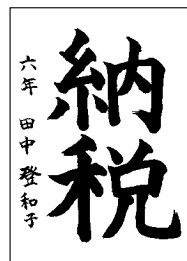 納税
六年 田中 登和子